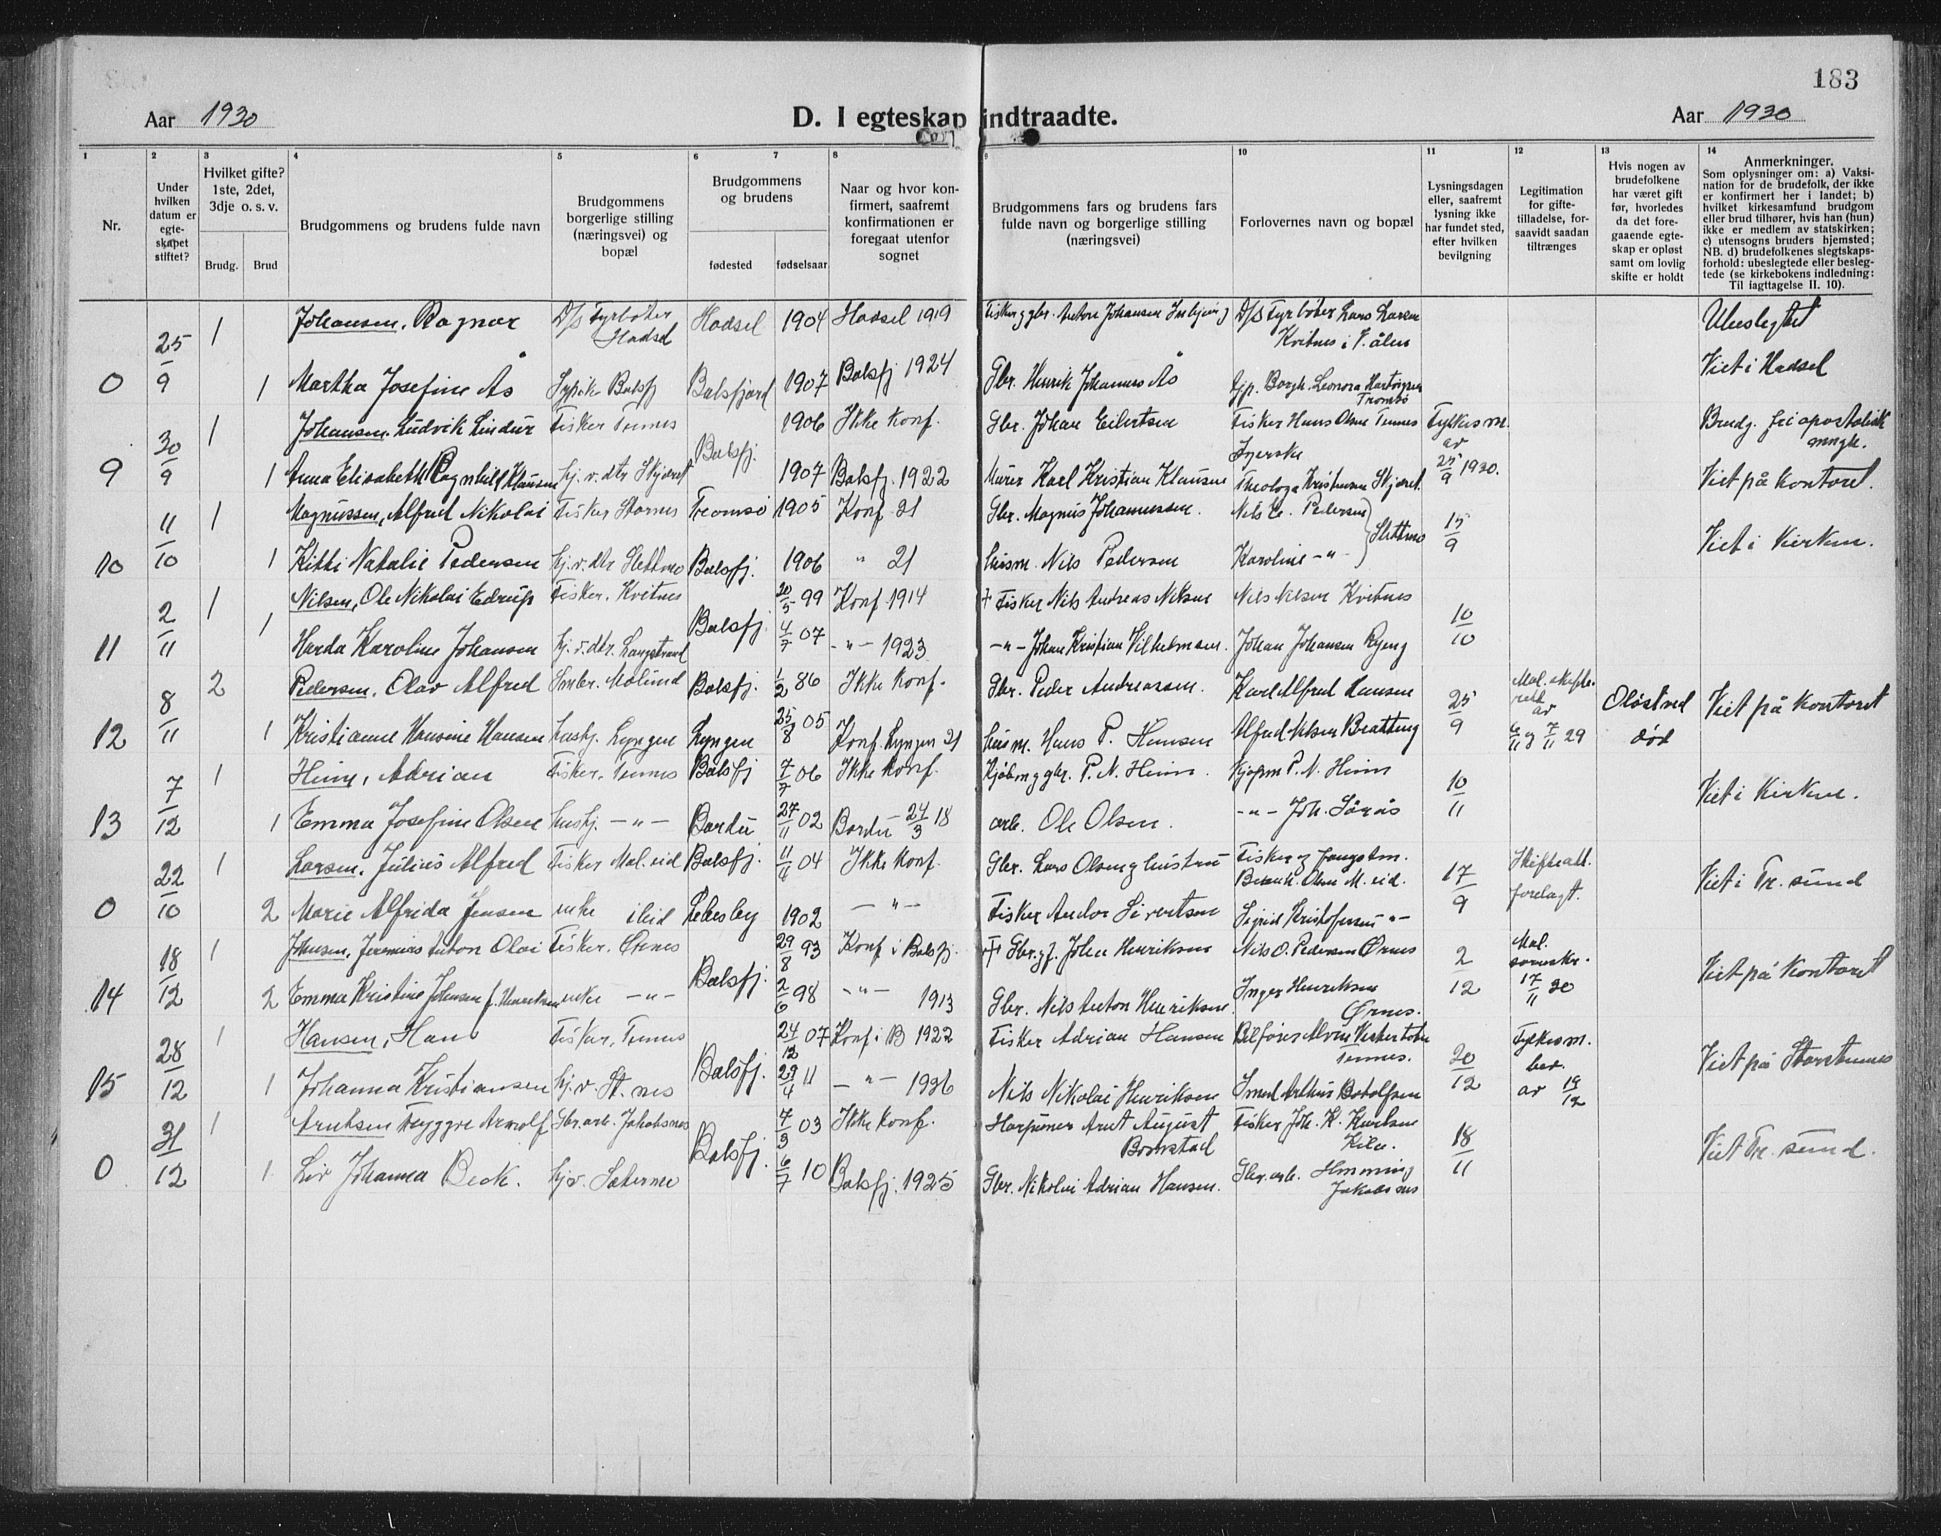 183
Aar 1930
D. I egteskap indtraadte.
Aar 1930
1 2 3 4 5 6 7 8 9 10 11 12 13 14
Nr.
Under hvilken datum er egteskapet stiftet?
Hvilket gifte? 1ste, 2det, 3dje o. s. v.
Brudg. Brud
Brudgommens og brudens fulde navn
Brudgommens borgerlige stilling (næringsvei) og bopæl
Brudgommens og brudens
fødested fødselsaar
Naar og hvor konfirmert, saafremt konfirmationen er foregaat utenfor sognet
Brudgommens fars og brudens fars fulde navn og borgerlige stilling (næringsvei)
Forlovernes navn og bopæl
Lysningsdagen eller, saafremt lysning ikke har fundet sted, efter hvilken bevilgning
Legitimation for giftetilladelse, forsaavidt saadan tiltrænges
Hvis nogen av brudefolkene har været gift før, hvorledes da det foregaaende egteskap er opløst samt om lovlig skifte er holdt
Anmerkninger.
Som oplysninger om: a) Vaksination for de brudefolk, der ikke er konfirmert her i landet; b) hvilket kirkesamfund brudgom eller brud tilhører, hvis han (hun) ikke er medlem av statskirken; c) utensogns bruders hjemsted; NB. d) brudefolkenes slegtskapsforhold: ubeslegtede eller beslegtede (se kirkebokens indledning: Til iagttagelse II. 10).
0 25/9 1 Johansen, Ragnar D/s Fyrbøter Hadsel Hadsel 1904 Hadsel 1919 D/s Fyrbøter Lars Larsen Kvitnes i Ubeslegtet
1 Martha Josefine Ås Balsfj Balsfjord 1907 Balsfj. 1924 Gbr. Henrik Johannes Ås Borgh. Leonora Tromsø Viet i Hadsel
9 30/9 1 Johansen, Ludvik Lindur Fisker Tennes Balsfj. 1906 Ikke konf. Gbr. Johan Eilertsen Fisker Hans Olsen Tennes Fylkesm. av 25/9 1930. Brudg. fri apostolisk mngh.
1 Anna Elisabeth Ragnhild Klausen hj. v. dtr Skjæret 1907 Balsfj. 1922 Murer Karl Kristian Klausen Kristensen Skjæret. Viet på kontoret.
10 11/10 1 Magnussen, Alfred Nikolai Fisker Tromsø 1905 Konf 21 Gbr. Magnus Johannessen. Nils E. Pedersen Slettmo 15/9 Viet i Kirken.
1 Kitti Natalie Pedersen hj. v. dtr Slettmo Balsfj. 1906 " 21 Husm. Nils Pedersen Karoline -"-
11 2/11 1 Nilsen, Ole Nikolai Edrup Fisker. Kvitnes Balsfj. 20/5 99 Konf 1914 + Fisker Nils Andreas Nilsen Nils Nilsen Kvitnes 10/10
1 Harda Karoline Johansen hj. v. dtr. Langstrand 4/7 07 -"- 1923 -"- Johan Kristian Vilhelmsen. Johan Johansen Ryeng
12 8/11 2 Pedersen, Olav Alfred Smbr. Målund Balsfj. 1/2 86 Ikke konf. Gbr. Peder Andreassen. Karl Alfred Hansen 25/9 Mal. skifterett av 6/11 og 7/11 29 Oløst ved død Viet på Kontoret
1 Kristianne Hansine Hansen hushj. Lyngen Lyngen 25/8 05 Konf. Lyngen 21 Husm. Hans P. Hansen Alfred Nilsen Bratteng
13 7/12 1 Heim, Adrian Fisker. Tennes Balsfj 7/7 06 Ikke konf. Kjøbm og gbr. P. N. Heim. Kjøpm P. N. Heim 10/11 Viet i Kirken.
1 Emma Josefine Olsen hushj. -"- Bardu 27/11 02 Bardu 24/3 18 arb. Ole Olsen. -"- Joh. Sørås
0 22/10 1 Larsen, Julius Alfred Fisker Mal.eid Balsfj. 11/4 04 Ikke konf. Gbr. Lars Olsen og hustru Fisker og fangstm. Olsen M. eid. 17/9 Skifteatt. forelagt. Viet i Tr. sund
2 Marie Alfrida Jensen enke ibid Lebesby 1902 -"- Fisker Andor Sivertsen Sigrid Kristofersen -"-
14 18/12 1 Johansen, Jeremias Anton Olai Fisker. Ørnes Balsfj. 29/8 93 Konf i Balsfj. Gbr. gf. Johan Henriksen Nils O. Pedersen Ørnes 2/12 Mal. sorenskr. 17/11 30 Viet på Kontoret
2 Emma Kristine Johansen f. Henriksen enke -"- 2/6 98 -"- 1913 Gbr. Nils Anton Henriksen. Inger Henriksen Ørnes.
15 28/12 1 Hansen, Hans Fisker, Tennes Balsfj. 24/12 07 Konf i B 1922 Fisker Adrian Hansen Bilfører Tennes. 20/12 Fylkesm. bev. av 19/12 Viet på Storsteinnes
1 Johanna Kristiansen hj. v. St. nes 29/4 11 -"- 1926 Nils Nikolai Henriksen Smed Botolfsen
0 31/12 1 Arntsen Tryggve Arnolf Gbr. arb. Jakobsnes Balsfj. 7/3 03 Ikke konf. Harpuner Arnt August Bomstad Fisker Joh. K. 18/11 Viet Tr. sund.
1 Liv Johanna Beck. hjv. Sæterne 6/7 10 Balsfj. 1925 Gbr. Nikolai Adrian Hansen. Gbr. arb. Hemming Jakobsnes